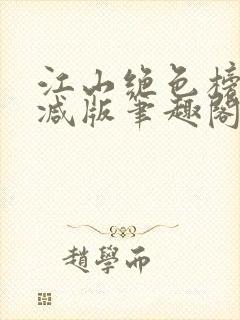 江山绝色榜
减版笔趣阁
趙學而